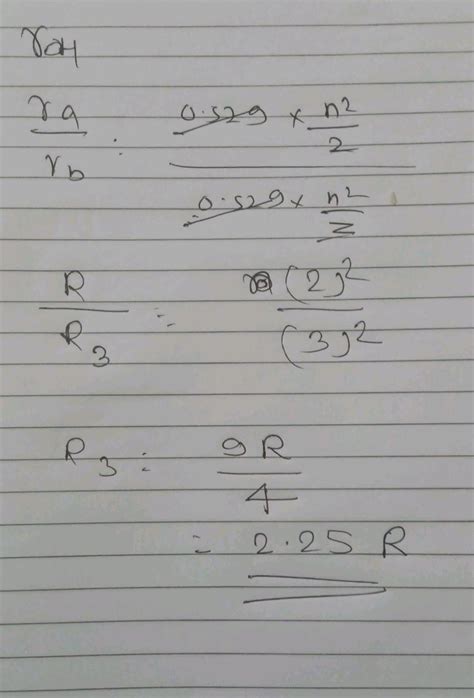 r
ra/rb : 0.529 × n²/z / 0.529 × n²/z
R/R₃ = (2)²/(3)²
R₃ = 9R/4
= 2.25 R